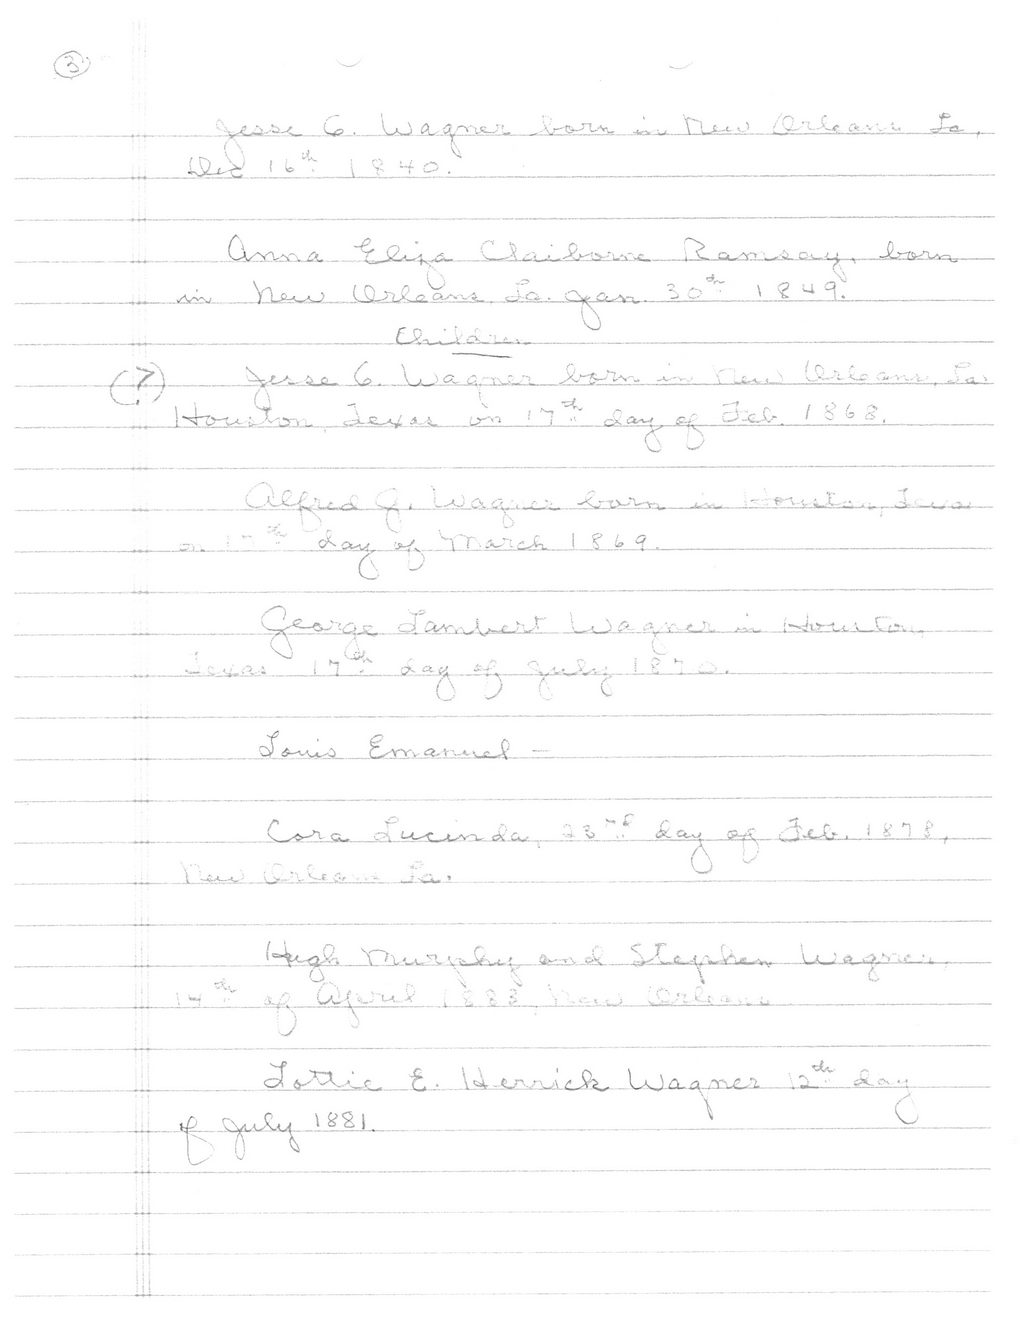 3
Jesse G. Wagner born in New Orleans La,
Dec 16th 1840.
Anna Eliza Claiborne Ramsay, born
in New Orleans, La. Jan. 30th 1849.
Children
(7) Jesse G. Wagner born in New Orleans, La.
Houston, Texas on 17th day of Feb. 1868.
Alfred J. Wagner born in Houston, Texas
on day of March 1869.
George Lambert Wagner in Houston,
Texas 17th day of July 1870.
Louis Emanuel —
Cora Lucinda, 23rd day of Feb. 1878,
New Orleans La.
Hugh Murphy and Stephen Wagner,
14th of April 1883, New Orleans
Lottie E. Herrick Wagner 12th day
of July 1881.